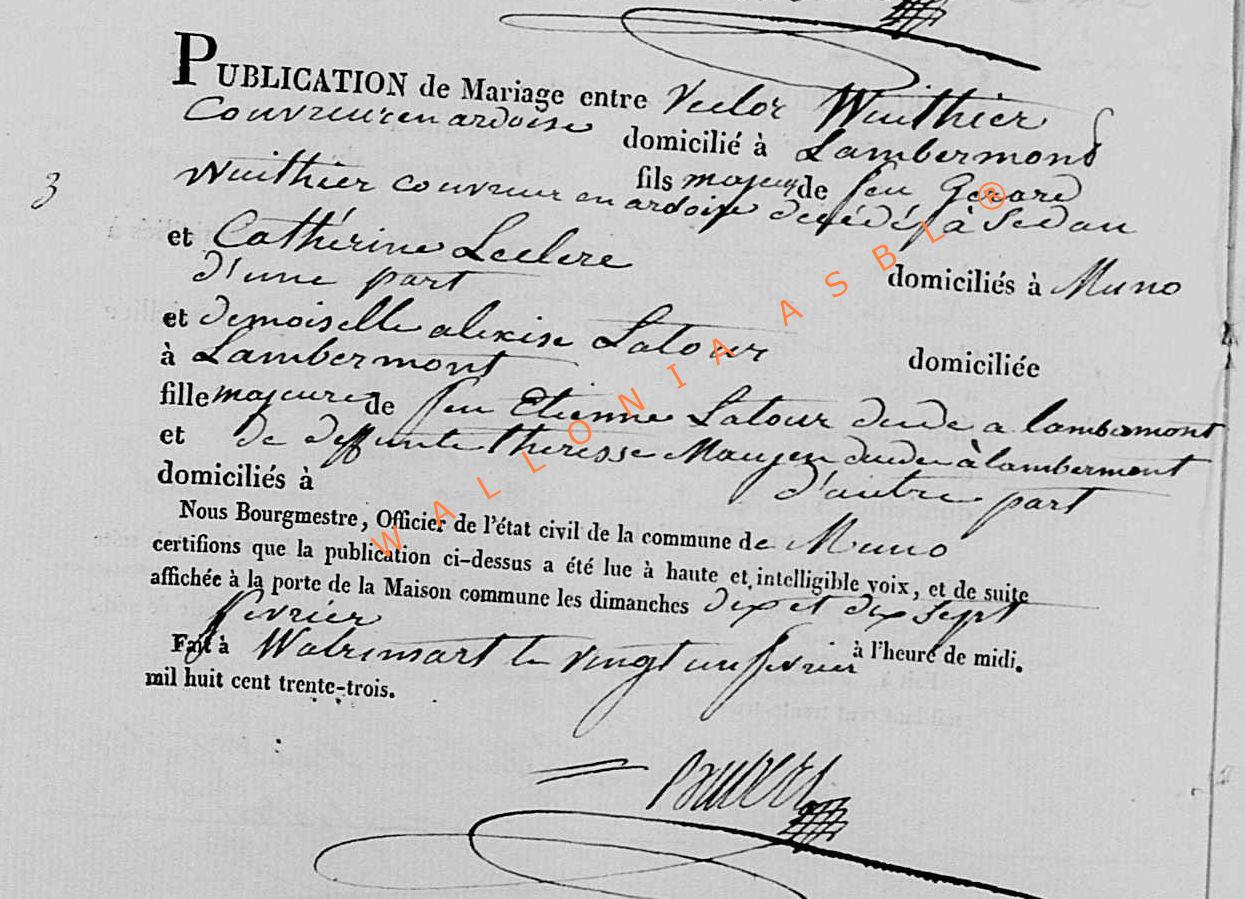 3
PUBLICATION de Mariage entre Victor Wuithier
Couvreur en ardoise domicilié à Lambermont
fils majeur de feu Gerard
Wuithier couvreur en ardoise décédé à Sedan
et Cathérine Leclere domiciliés à Muno
d'une part
et demoiselle alexise Latour domiciliée
à Lambermont
fille majeure de feu Etienne Latour a lambermont
et de deffunte theresse à lambermont
domiciliés à d'autre part
Nous Bourgmestre, Officier de l'état civil de la commune de Muno
certifions que la publication ci-dessus a été lue à haute et intelligible voix, et de suite
affichée à la porte de la Maison commune les dimanches dix et dix sept
fevrier à l'heure de midi.
Fait à Watrinsart le vingt un fevrier
mil huit cent trente-trois.
Pauvers
WALLONIA ASBL ®